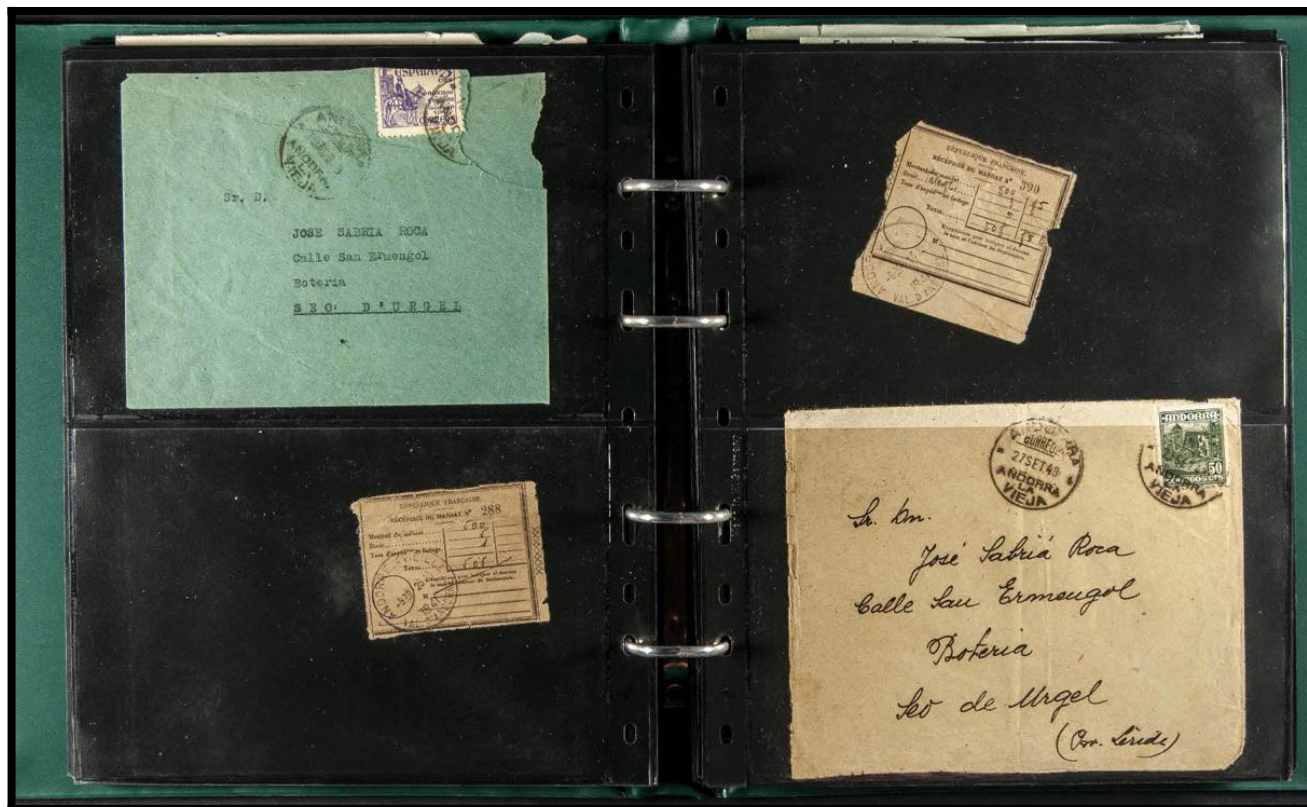 ESPAÑA
ANDORRA
VIEJA
VIEJA
Sr. D.
JOSE SABRIA ROCA
Calle San Ermengol
Boteria
SEO. D'URGEL
RÉPUBLIQUE FRANÇAISE.
RÉCÉPISSÉ DE MANDAT N° 288
Montant du mandat
500
Droit
Taxe d'expédition et factage
Total
M
ANDORRE
VAL. D'ANDORRE
RÉPUBLIQUE FRANÇAISE.
RÉCÉPISSÉ DE MANDAT N° 390
Montant du mandat
500
Droit
Total
M
VAL. D'ANDORRE
ANDORRA
50
CORREOS
27 SET 49
ANDORRA
LA
VIEJA
ANDORRA
VIEJA
Sr. Dn.
José Sabriá Roca
Calle San Ermengol
Boteria
Seo de Urgel
(Prov. Lérida)